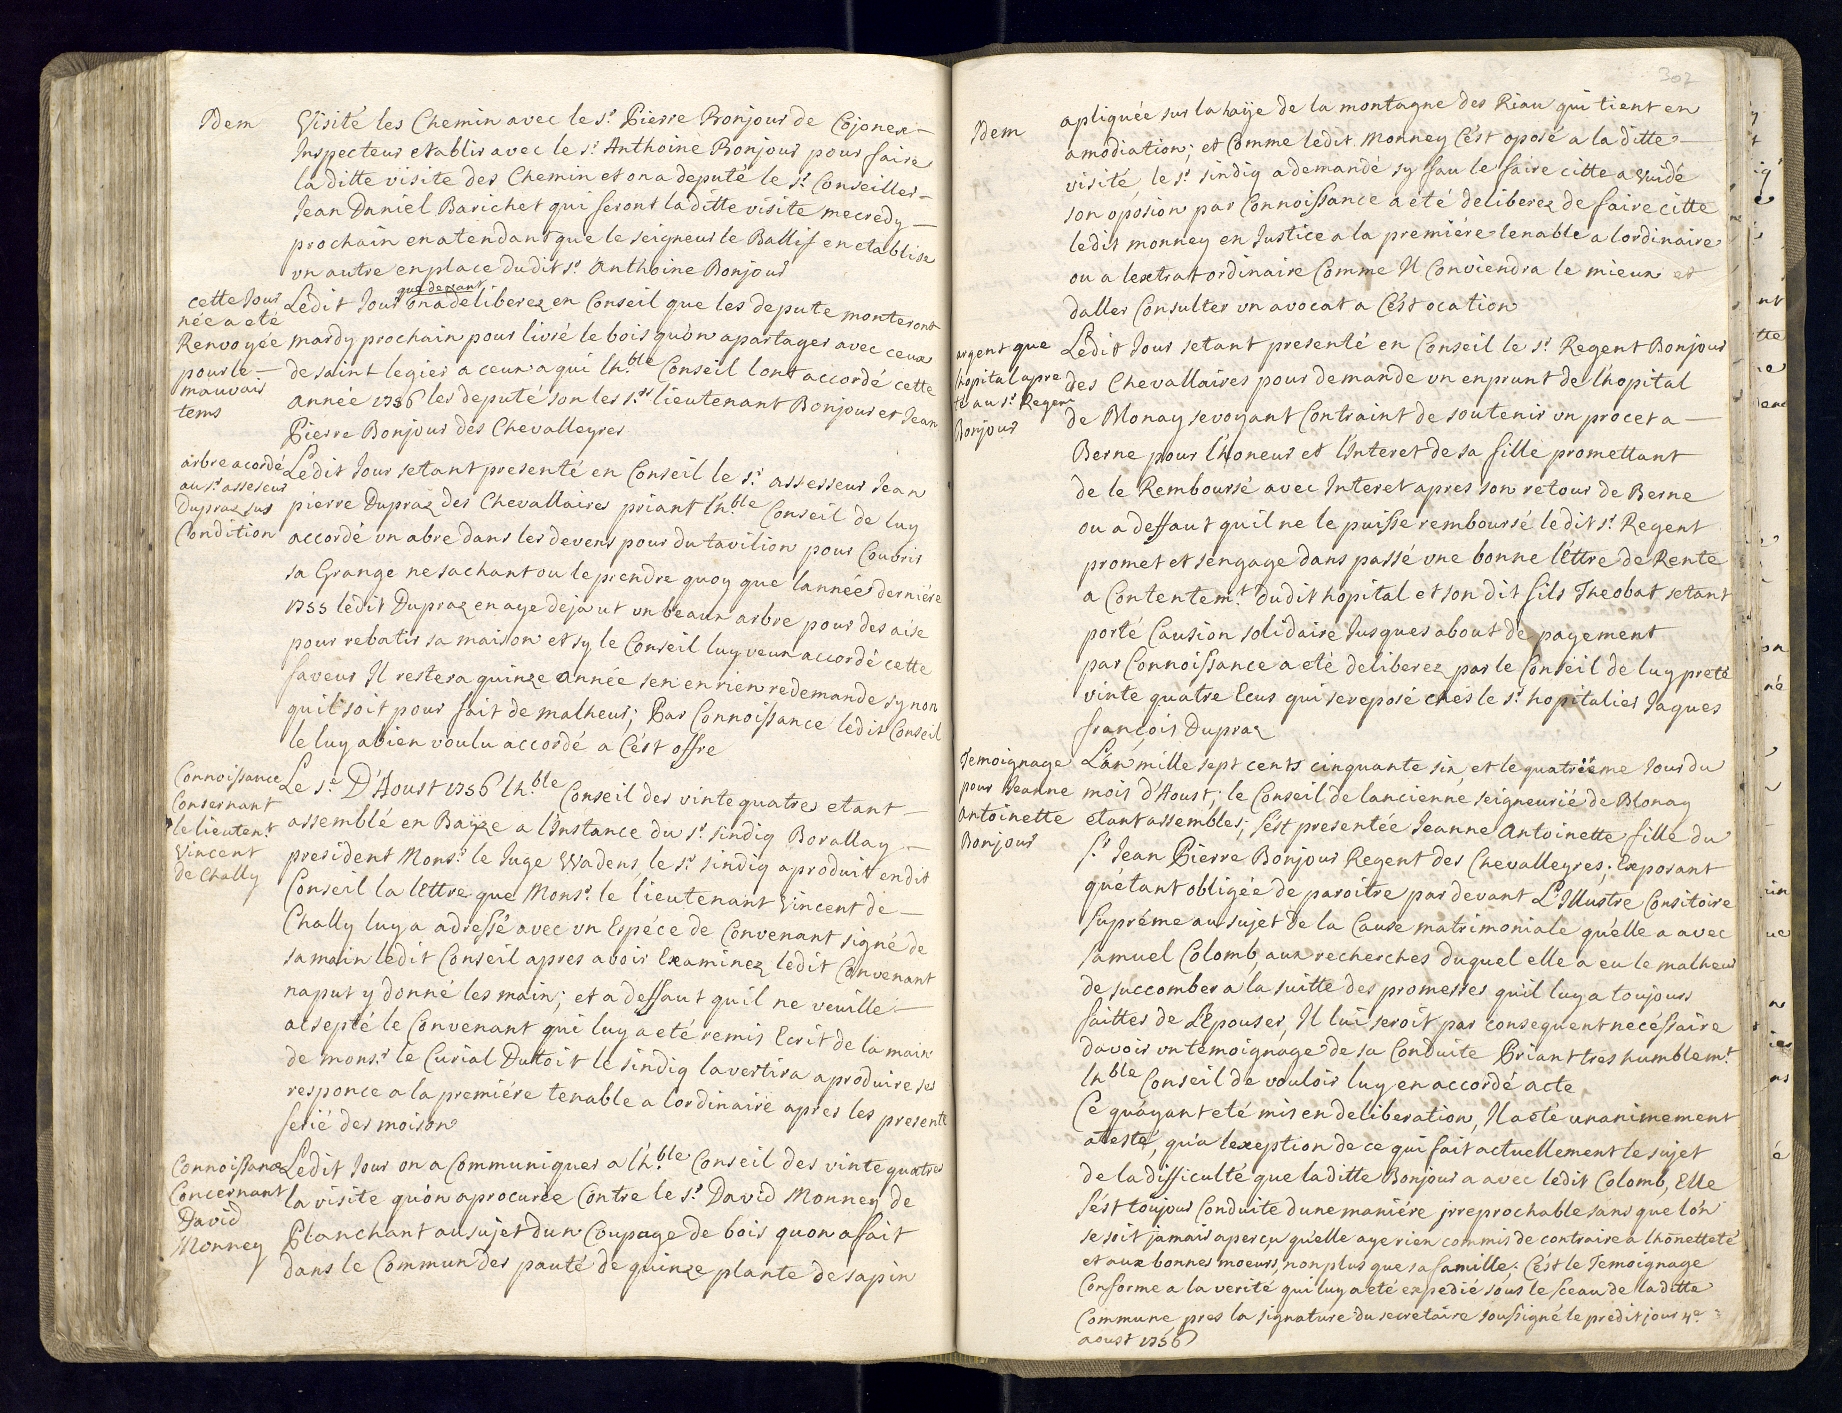 Idem
Visité les Chemin avec le s.r Pierre Bonjour de Cojonex
Inspecteur etablir avec le s.r Anthoine Bonjour pour faire
la ditte visite des Chemin et on a deputé le s.r Conseiller
Jean Daniel Barichet qui seront la ditte visite mecredy
prochain en atendant que le seigneur le Ballif en etablise
un autre en place dudit s.r Anthoine Bonjour
cette Jour
née a eté
Renvoyée
pour le
mauvais
tems
Ledit Jour on a deliberez en Conseil que les depute monteront
mardy prochain pour livré le bois qu'on a partager avec ceux
de saint legier a ceux a qui lh.ble Conseil lont accordé cette
année 1756 les deputé son les s.rs lieutenant Bonjour et Jean
Pierre Bonjour des Chevalleyres
arbre acordé
au s.r assesseur
Dupraz sus
Condition
Ledit Jour setant presenté en Conseil le s.r assesseur Jean
pierre Dupraz des Chevallaires priant lh.ble Conseil de luy
accordé un abre dans les devens pour du tavilion pour Couvrir
sa Grange ne sachant ou le prendre quoy que lannée derniére
1755 ledit Dupraz en aye deja ut un beaux arbre pour des aise
pour rebatir sa maison et sy le Conseil luy veux accordé cette
faveur Il restera quinze année sen en rien redemande sy non
quil soit pour fait de malheur; Par Connoissance ledit Conseil
le luy a bien voulu accordé a Cést offre
Connoissance
Consernant
le lieutent
Vincent
de Chally
Le 1.e D'Aoust 1756 lh.ble Conseil des vintequatres etant
assemblé en Baÿe a l'Instance du s.r sindiq Borallay
president Mons.r le Juge Wadens, le s.r sindiq a produit en dit
Conseil la lettre que Mons.r le lieutenant Vincent de
Chally luy a adressé avec un Espéce de Convenant signé de
sa main ledit Conseil apres avoir Examinez ledit Convenant
na put y donné les main; et a deffaut quil ne veuille
alsepté le Convenant qui luy a eté remis Ecrit de la main
de mons.r le Curial Dutoit le sindiq lavertira a produire ses
responce a la premiére tenable a lordinaire apres les presente
ferié des moison
Connoissance
Concernant
David
Monney
Ledit Jour on a Communiquer a lh.ble Conseil des vintequatres
la visite qu'on a procurée Contre le s.r David Monney de
Planchant au sujet dun Coupage de bois quon a fait
dans le Commun des pauté de quinze plante de sapin
302
Idem
apliquée sur la haÿe de la montagne des Riau qui tient en
amodiation; et Comme ledit Monney Cést oposé a la ditte
visité le s.r sindiq a demandé sy fau le faire citte a vuidé
son oposion par Connoissance a été deliberez de faire citte
ledit monney en Justice a la premiére tenable a lordinaire
ou a lextrat ordinaire Comme Il Conviendra le mieux et
daller Consulter un avocat a Cést ocation
argent que
lhopital a pre
té au s.r Regent
Bonjour
Ledit Jour setant presenté en Conseil le s.r Regent Bonjour
des Chevallaires pour demande un enprunt de lhopital
de Blonay se voyant Contraint de soutenir un procet a
Berne pour l'honeur et l'Interet de sa fille promettant
de le Remboursé avec Interet apres son retour de Berne
ou a deffaut quil ne le puisse remboursé ledit s.r Regent
promet et sengage dans passé une bonne lêttre de Rente
a Contentem.t dudit hopital et son dit fils Theobat setant
porté Causion solidaire Jusques a bout de payement
par Connoissance a eté deliberez par le Conseil de luy preté
vinte quatre Ecus qui se reposé chés le s.r hopitalier Jaques
françois Dupraz
Temoignage
pour Jeanne
Antoinette
Bonjour
L'án mille sept cents cinquante six, et le quatriéme Jour du
mois d'Aoust; le Conseil de lancienne seigneurié de Blonay
étant assembles; sést presentée Jeanne Antoinette fille du
s.r Jean Pierre Bonjour Regent des Chevalleyres; Exposant
qu'étant obligée de paroitre par devant L'Illustre Consitoire
suprême au sujet de la Cause matrimoniale qu'elle a avec
samuel Colomb, aux recherches duquel elle a eu le malheur
de succomber a la suitte des promesses quil luy a toujours
faittes de L'Epouser, Il lui seroit par consequent necéssaire
davoir un temoignage de sa Conduite Priant tres humblem.t
lh.ble Conseil de vouloir luy en accordé acte
Ce qu'ayant eté mis en deliberation, Il a eté unanimement
atesté, qu'a lexeption de ce qui fait actuellement le sujet
de la difficulté que la ditte Bonjour a avec ledit Colomb, Elle
sést toujour Conduite dune maniére irreprochable sans que lón
se soit jamais aperçu qu'elle aye rien commis de contraire a lhonetteté
et aux bonnes moeurs, non plus que sa famille. Cést le Temoignage
Conforme a la verité qui luy a eté expedié sous le sceau de laditte
Commune, pres la signature du secretaire soussigné le predit jour 4.e
aoust 1756